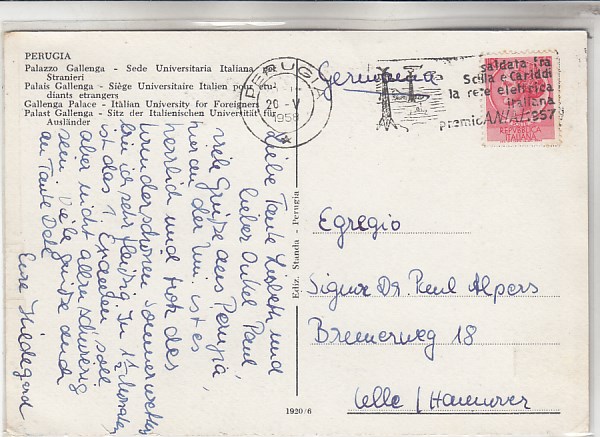 PERUGIA
Palazzo Gallenga - Sede Universitaria Italiana per
Stranieri
Palais Gallenga - Siège Universitaire Italien pour etu-
diants etrangers
Gallenga Palace - Italian University for Foreigners
Palast Gallenga - Sitz der Italienischen Universität für
Ausländer
PERUGIA
20 - V
1958
saldata fra
Scilla e Cariddi
la rete elettrica
italiana
premio ANIAI 1957
REPVBBLICA
ITALIANA
Germania
Liebe Tante Lisbeth und
lieber Onkel Paul,
viele Grüsse aus Perugia,
hier an der Uni. ist es
herrlich und trotz des
wunderschönen Sommerwetters
bin ich sehr fleißig. In 1½ Monaten
ist das 1. Examen, soll
aber nicht allzu schwierig
sein. Viele Grüsse auch
an Tante
Eure Hildegard
Ediz. Standa - Perugia
Egregio
Signor Dr. Paul Alpers
Bremerweg 18
Celle / Hannover
1920/6